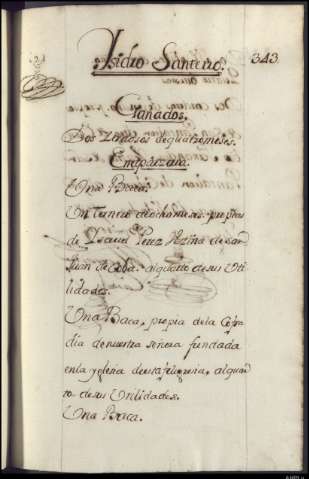 Isidro Santeiro. 343.
Ganados.
Dos Lerdosos de quatro meses.
Emparzaria.
Una Baca.
Un Ternero de ocho meses, propias
de Ysavel Perez Vezina de San
Juan de Coba. alquarto de sus Uti-
lidades.
Una Baca, propia de la Cofra-
dia de nuestra señora fundada
en la yglesia de esta feligresia, alquar-
to de sus Utilidades.
Una Baca.